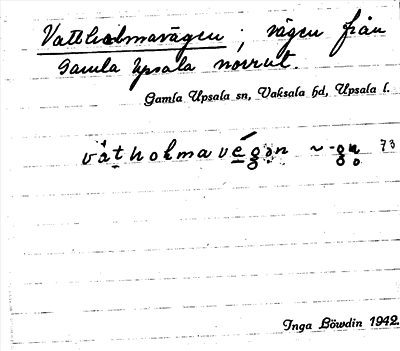 Vattholmavägen ; vägen från
Gamla Upsala norrut.
Gamla Upsala sn, Vaksala hd, Upsala l.
våtholmavégən ~ -gn̥ 73
Inga Löwdin 1942.